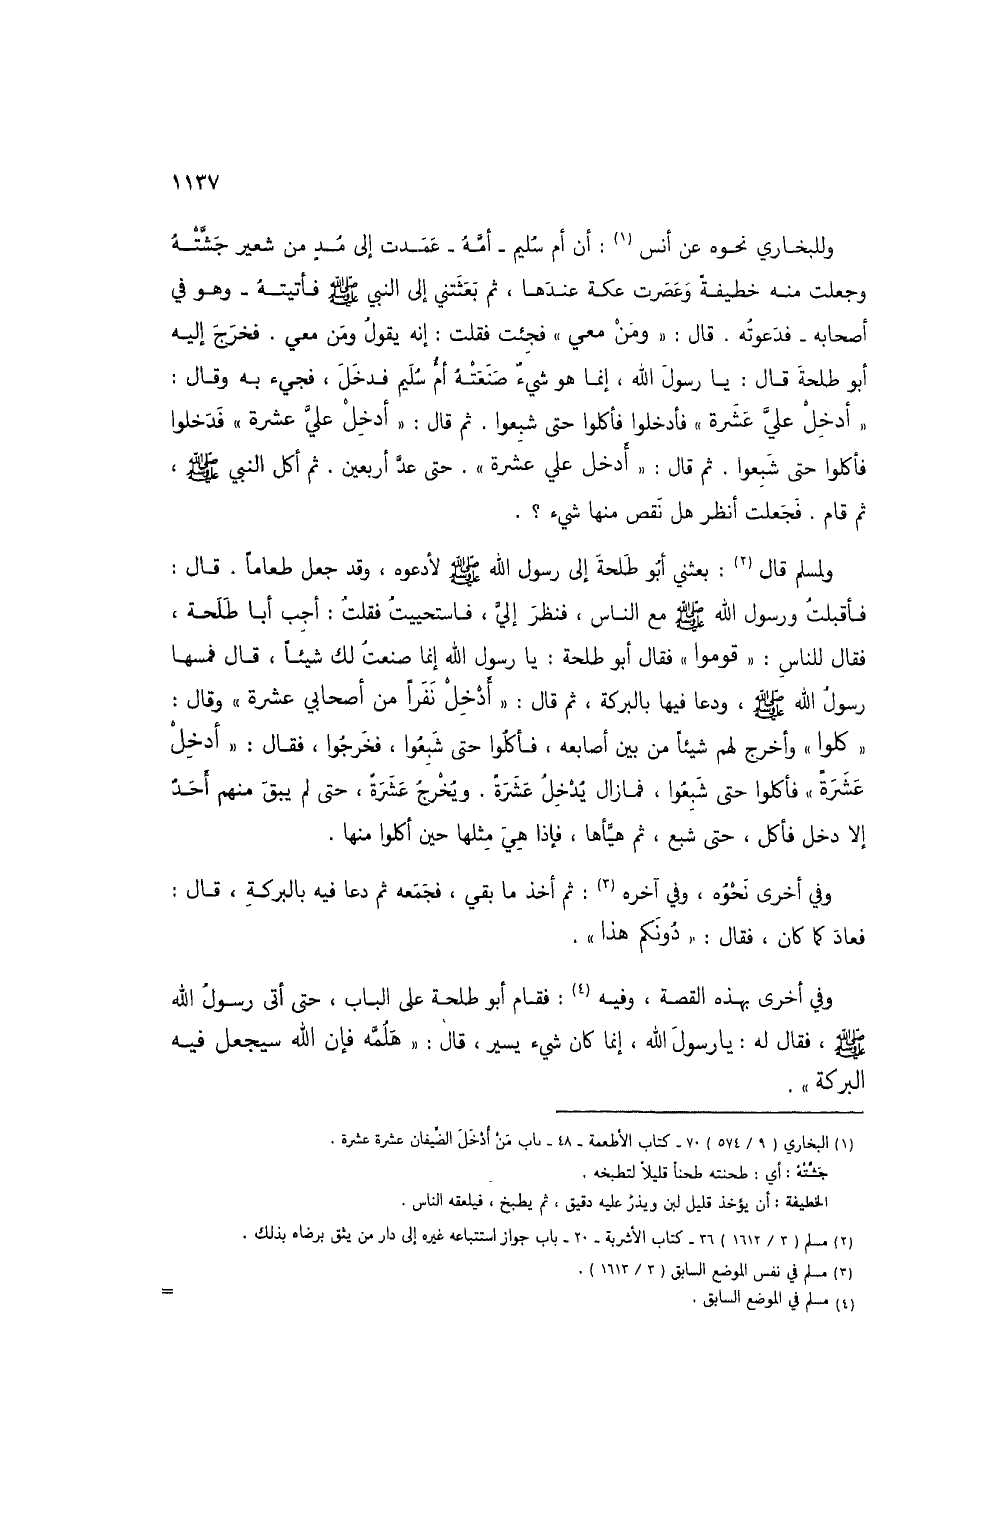 ١١٣٧
وللبخاري نحوه عن أنس (١) : أن أم سُليم ـ أمَّهُ ـ عَمَدت إلى مُدٍ من شعير جَشَّتْهُ
وجعلت منه خطيفةً وَعَصَرت عكة عندَها ، ثم بَعَثَتني إلى النبي ﷺ فأتيتهُ ـ وهو في
أصحابه ـ فدَعوتُه . قال : « ومَنْ معي » فجئت فقلت : إنه يقولُ ومَن معي . فخرَجَ إليه
أبو طلحةَ قال : يا رسولَ الله ، إنما هو شيءٌ صَنَعَتْهُ أمُّ سُلَيم فدخَلَ ، فجيء به وقال :
« أدخِلْ عليَّ عَشَرة » فأدخلوا فأكلوا حتى شبِعوا . ثم قال : « أدخِلْ عليَّ عشرة » فَدَخلوا
فأكلوا حتى شَبِعوا . ثم قال : « أَدخل علي عشرة » . حتى عدَّ أربعين . ثم أكل النبي ﷺ ،
ثم قام . فَجَعلت أنظر هل نَقص منها شيء ؟ .
ولمسلم قال (٢) : بعثني أبُو طَلحةَ إلى رسول الله ﷺ لأدعوه ، وقد جعل طعاماً . قال :
فأقبلتُ ورسول الله ﷺ مع الناس ، فنظرَ إليَّ ، فاستحييتُ فقلتُ : أجِب أبا طَلَحة ،
فقال للناسِ : « قوموا » فقال أبو طلحة : يا رسول الله إنما صنعتُ لك شيئاً ، قال فمسها
رسولُ الله ﷺ ، ودعا فيها بالبركة ، ثم قال : « أَدْخِلْ نَفَراً من أصحابي عشرة » وقال :
« كلوا » وأخرج لهم شيئاً من بين أصابعه ، فأكلُوا حتى شَبِعُوا ، فخَرجُوا ، فقال : « أدخِلْ
عَشَرَةً » فأكلوا حتى شَبِعُوا ، فمازال يُدْخِلُ عَشَرَةً . ويُخْرجُ عَشَرَةً ، حتى لم يبقَ منهم أَحَدٌ
إلا دخل فأكل ، حتى شبع ، ثم هيَّأها ، فإذا هِيَ مِثلها حين أكلوا منها .
وفي أخرى نَحْوُه ، وفي آخره (٣) : ثم أخذ ما بقي ، فجَمَعه ثم دعا فيه بالبركةِ ، قال :
فعادَ كما كان ، فقال : « دُونَكم هذا » .
وفي أخرى بهذه القصة ، وفيه (٤) : فقام أبو طلحة على الباب ، حتى أتى رسولُ الله
ﷺ ، فقال له : يارسولَ الله ، إنما كان شيء يسير ، قال : « هَلُمَّه فإن الله سيجعل فيه
البركة » .
(١) البخاري ( ٩ / ٥٧٤ ) ٧٠ ـ كتاب الأطعمة ـ ٤٨ ـ باب مَنْ أَدْخَلَ الضِّيفان عشرة عشرة .
جَشَّتْهُ : أي : طحنته طحناً قليلاً لتطبخه .
الخطيفة : أن يؤخذ قليل لبن ويذرُ عليه دقيق ، ثم يطبخ ، فيلعقه الناس .
(٢) مسلم ( ٣ / ١٦١٢ ) ٣٦ ـ كتاب الأشربة ـ ٢٠ ـ باب جواز استتباعه غيره إلى دار من يثق برضاه بذلك .
(٣) مسلم في نفس الموضع السابق ( ٣ / ١٦١٣ ) .
(٤) مسلم في الموضع السابق .
=